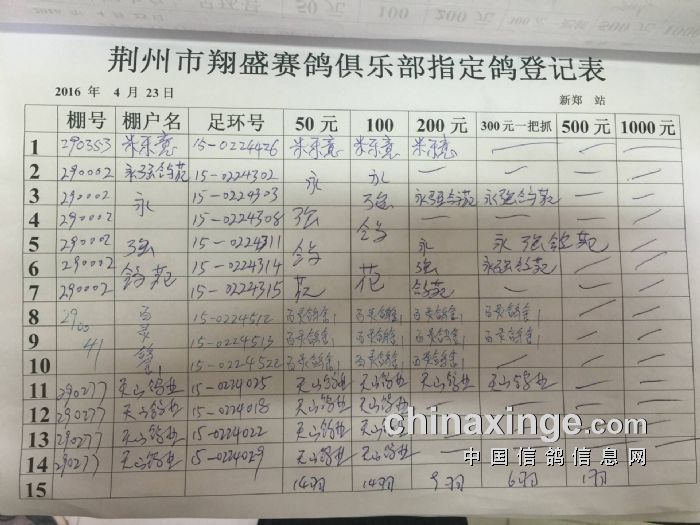 荆州市翔盛赛鸽俱乐部指定鸽登记表
2016 年 4 月 23 日 新郑 站
棚号 棚户名 足环号 50 元 100 200 元 300元一把抓 500 元 1000 元
1 290353 米乐意 15-0224426 米乐意 米乐意 米乐意 — — —
2 290002 永强鸽苑 15-0224302 永 永 — — — —
3 290002 永 15-0224303 强 永强鸽苑 永强鸽苑 — —
4 290002 15-0224308 强 鸽 — — — —
5 290002 强 15-0224311 鸽 永 永强鸽苑 —
6 290002 鸽苑 15-0224314 强 永强鸽苑 — —
7 290002 15-0224315 苑 苑 鸽苑 — — —
8 2900 百 15-0224512 百灵鸽舍 百灵鸽舍 百灵鸽舍 百灵鸽舍
9 41 灵 15-0224515 百灵鸽舍 百灵鸽舍 百灵鸽舍 百灵鸽舍
10 鸽舍 15-0224522 百灵鸽舍 百灵鸽舍 百灵鸽舍 —
11 290277 天山鸽业 15-0224025 天山鸽业 天山鸽业 天山鸽业 天山鸽业 — —
12 290277 天山鸽业 15-0224018 天山鸽业 天山鸽业
13 290277 天山鸽业 15-0224022 天山鸽业 天山鸽业
14 290277 天山鸽业 15-0224029 天山鸽业 天山鸽业 — — — —
15 14羽 14羽 9羽 6羽 1羽
chinaxinge.com
中国信鸽信息网